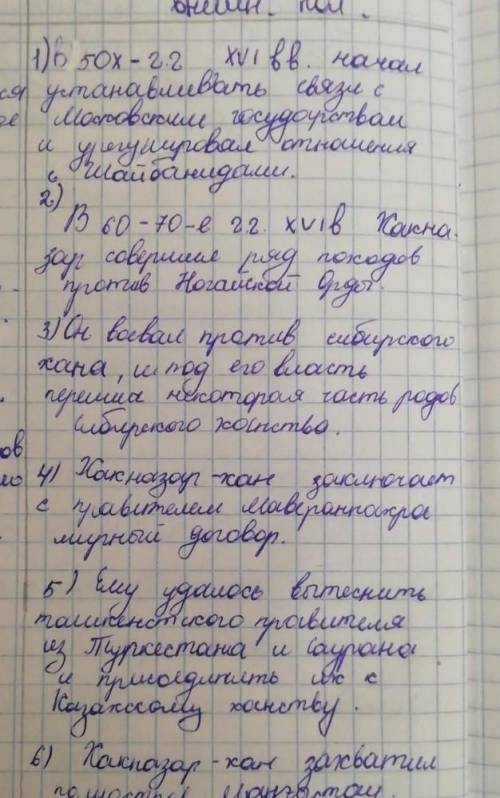 внешн. пол.
1) В 50х - г.г XVI вв. начал
ся устанавливать связи с
ое Московским государством
и урегулировал отношения
с Шайбанидами.
2)
В 60-70-е г.г. XVI в Хакна-
зар совершил ряд походов
против Ногайской Орды.
3) Он воевал против сибирского
хана, и под его власть
перешла некоторая часть родов
Сибирского ханства.
ов
4) Хакназар-хан заключает
с правителем Мавераннахра
мирный договор.
5) Ему удалось вытеснить
ташкентского правителя
из Туркестана и Саурана
и присоединить их к
Казахскому ханству.
6) Хакназар-хан захватил
полностью